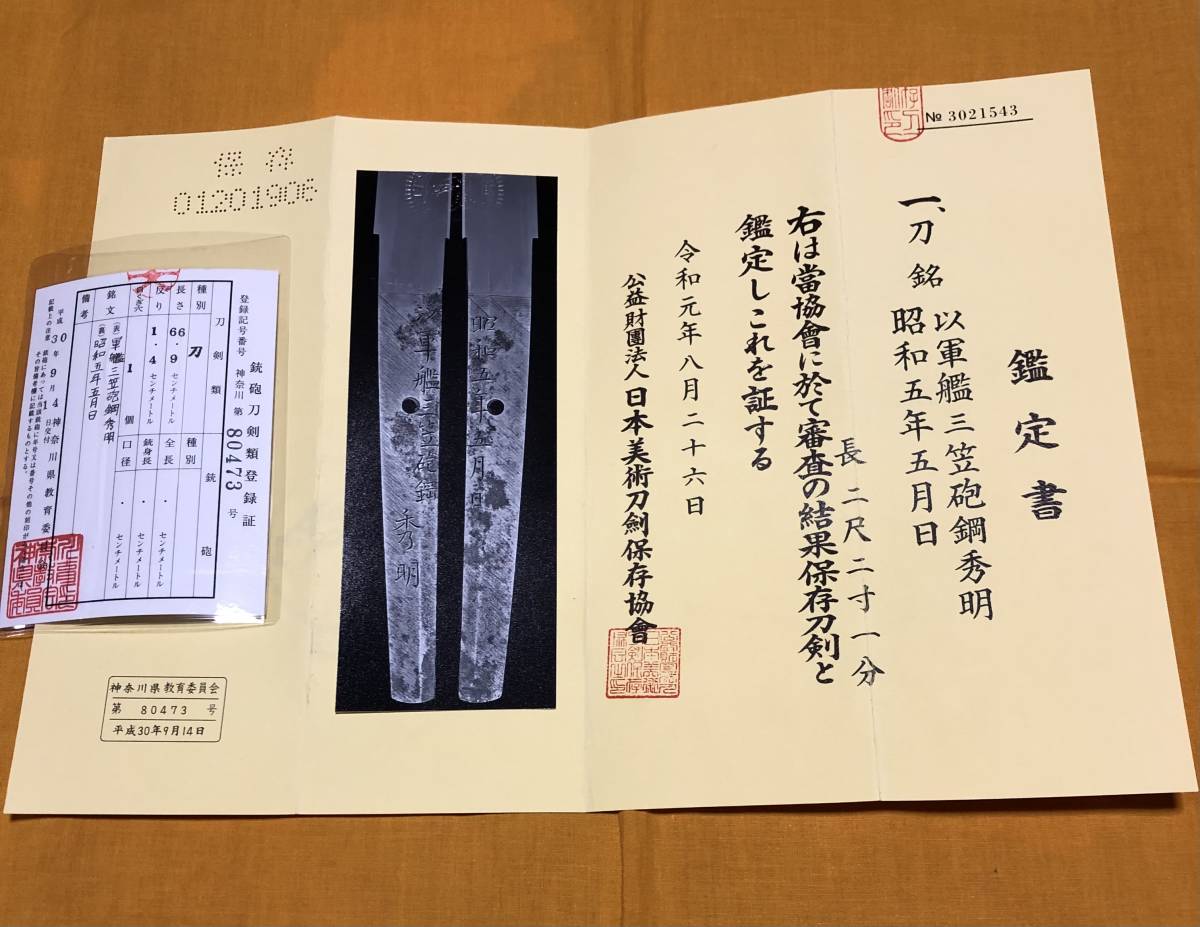 № 3021543
鑑定書
一、刀 銘 以軍艦三笠砲鋼秀明
昭和五年五月日
長 二尺二寸一分
右は當協會に於て審査の結果保存刀剣と
鑑定しこれを証する
令和元年八月二十六日
公益財團法人日本美術刀劍保存協會
昭和五年五月日
軍艦三笠砲鋼秀明
保存
01201906
銃砲刀剣類登録証
登録記号番号 神奈川 第 80473 号
刀剣類
銃砲
種別 刀
長さ 66.9 センチメートル
反り 1.4 センチメートル
目くぎ穴 1 個
銘文 (表) 軍艦三笠砲鋼秀明
(裏) 昭和五年五月日
備考
種別
全長 . センチメートル
銃身長 . センチメートル
口径 . センチメートル
平成30年9月14日交付
神奈川県教育委
記載上の注意
神奈川県教育委員会
第 80473 号
平成30年9月14日